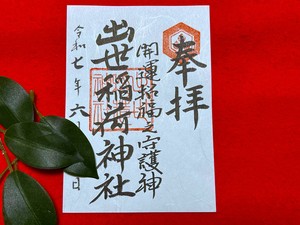 奉拝
開運招福之守護神
出世稲荷神社
令和七年六月 日